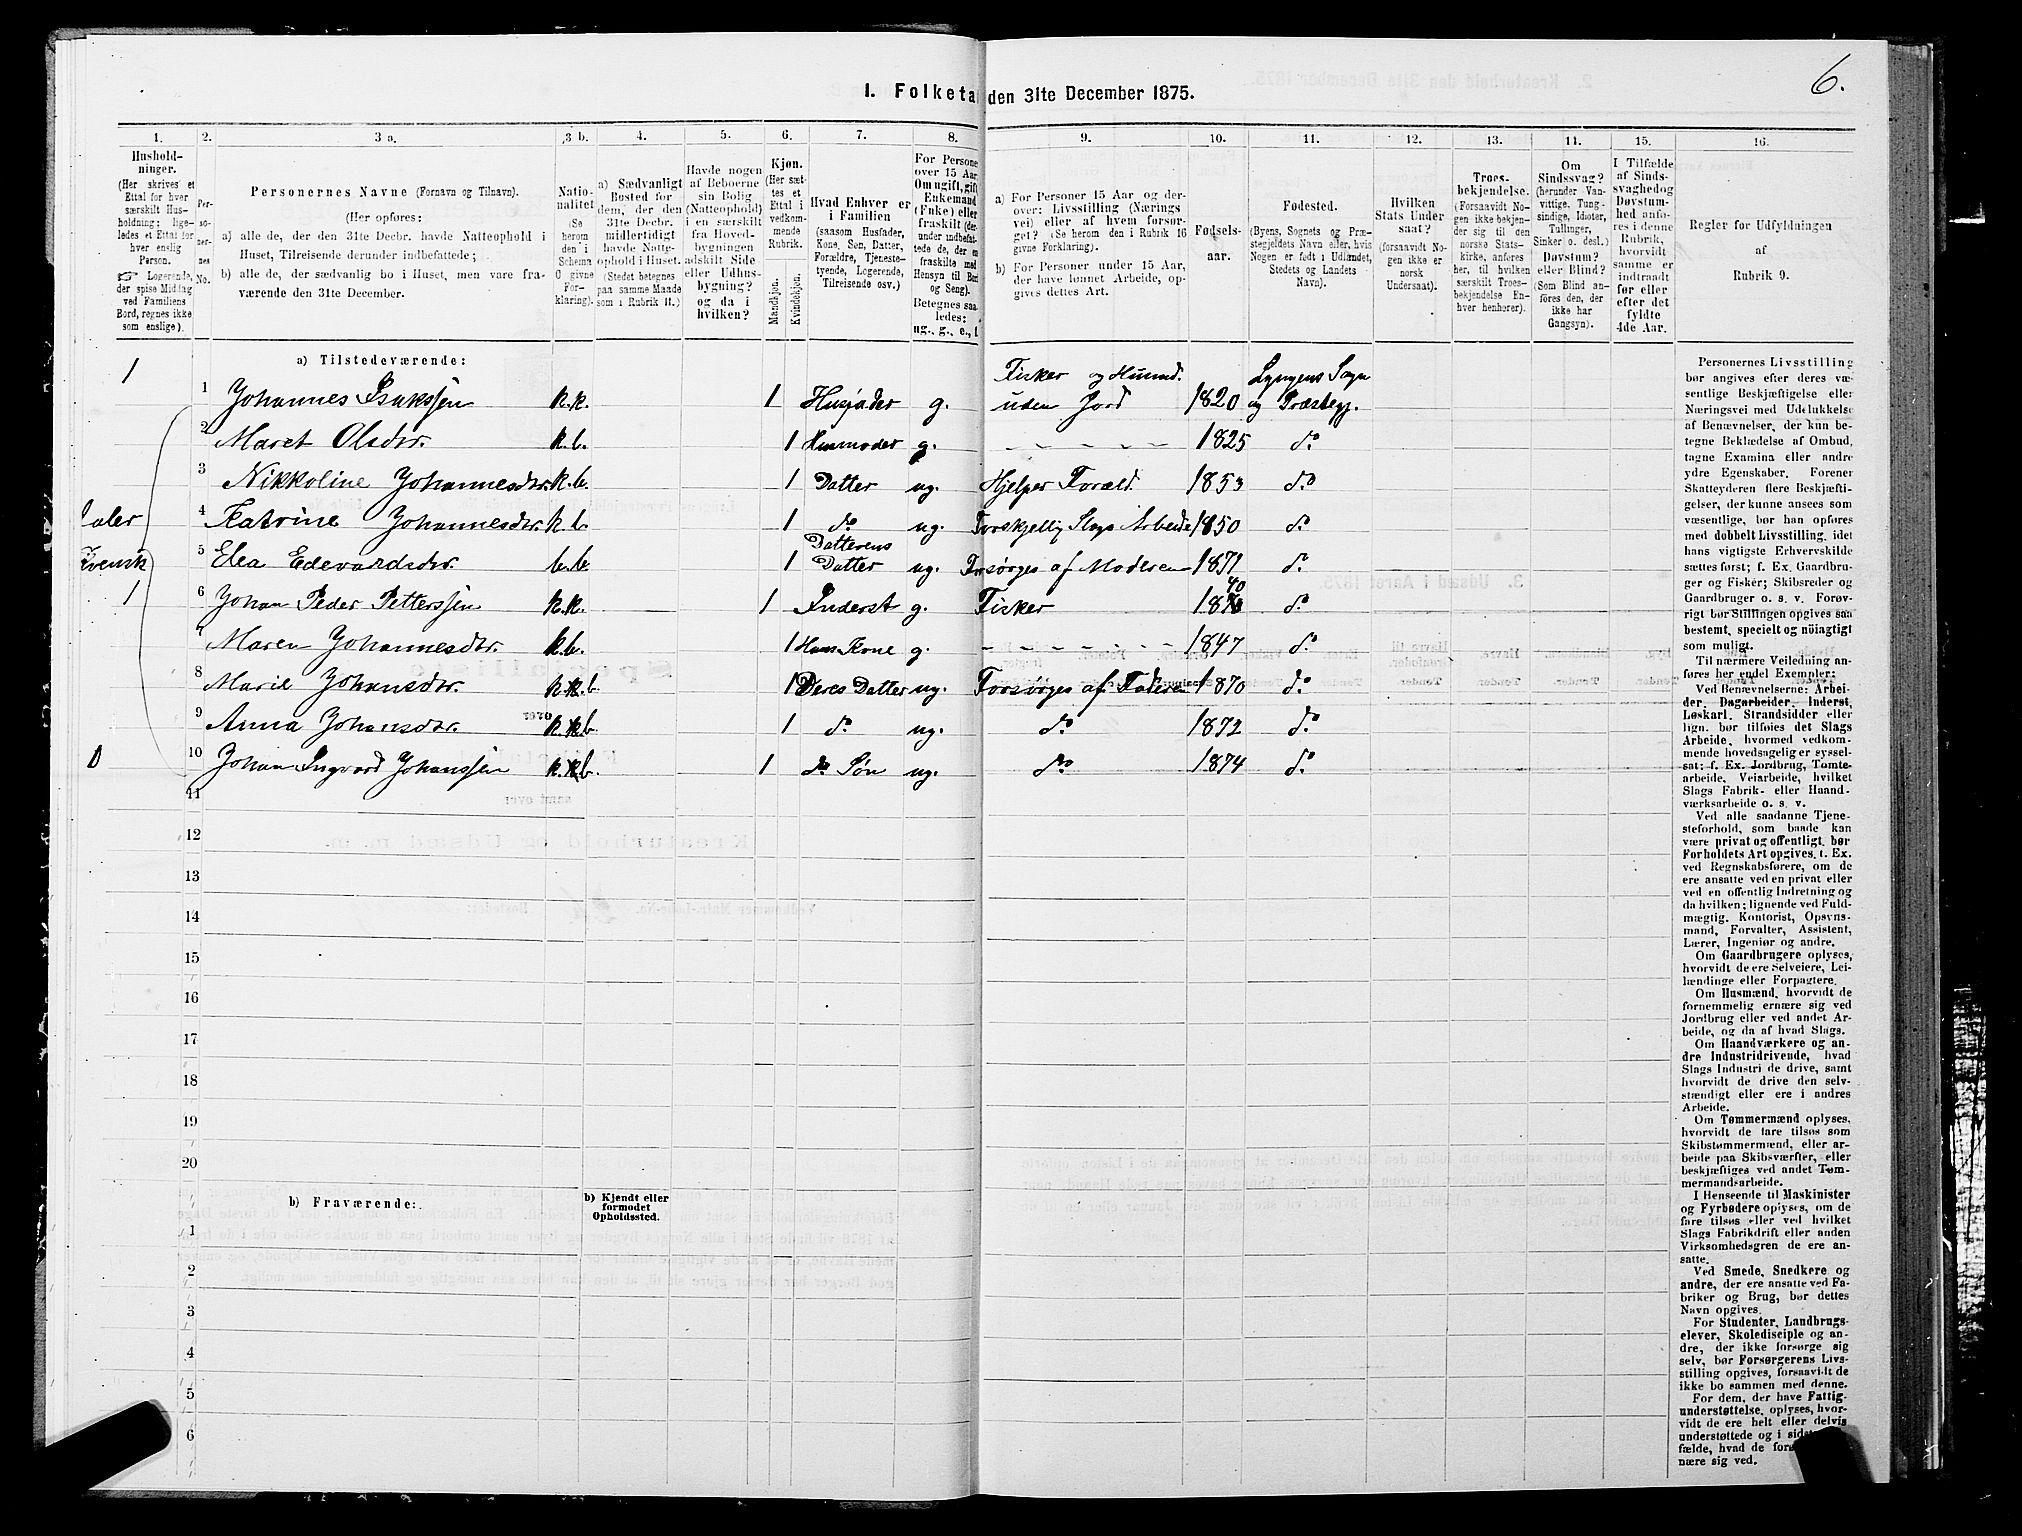 6.
I. Folketa den 31te December 1875.
1. 2. 3 a. 3 b. 4. 5. 6. 7. 8. 9. 10. 11. 12. 13. 14. 15. 16.
Hushold-
ninger.
(Her skrives et
Ettal for hver
særskilt Hus-
holdning; lige-
ledes et Ettal for
hver enslig
Person.
☞ Logerende,
der spise Middag
ved Familiens
Bord, regnes ikke
som enslige).
Per-
so-
ner-
nes
No.
Personernes Navne (Fornavn og Tilnavn).
(Her opføres:
a) alle de, der den 31te Decbr. havde Natteophold i
Huset, Tilreisende derunder indbefattede;
b) alle de, der sædvanlig bo i Huset, men vare fra-
værende den 31te December.
Natio-
nalitet
(Se
herom
den i
Schema
O givne
For-
klaring).
a) Sædvanligt
Bosted for
dem, der den
31te Decbr.
midlertidigt
havde Natte-
ophold i Huset.
(Stedet betegnes
paa samme Maade
som i Rubrik 11.)
Havde nogen
af Beboerne
sin Bolig
(Natteophold)
i en særskilt
fra Hoved-
bygningen
adskilt Side
eller Udhus-
bygning?
og da i
hvilken?
Kjøn.
(Her sæt-
tes et
Ettal i
vedkom-
mende
Rubrik.
Mandkjøn.
Kvindekjøn.
Hvad Enhver er
i Familien
(saasom Husfader,
Kone, Søn, Datter,
Forældre, Tjeneste-
tyende, Logerende,
Tilreisende osv.)
For Persone
over 15 Aar
Om ugift, gift
Enkemand
(Enke) eller
fraskilt (der-
under indbefat-
tede de, der ere
fraskilte med
Hensyn til Bor
og Seng).
Betegnes saa-
ledes:
ug., g., e., f.
a) For Personer 15 Aar og der-
over: Livsstilling (Nærings
vei) eller af hvem forsør-
get? (Se herom den i Rubrik 16
givne Forklaring).
b) For Personer under 15 Aar,
der have lønnet Arbeide, op-
gives dettes Art.
Fødsels-
aar.
Fødested.
(Byens, Sognets og Præ-
stegjeldets Navn eller, hvis
Nogen er født i Udlandet,
Stedets og Landets
Navn).
Hvilken
Stats Under
saat?
(forsaavidt No-
gen ikke er
norsk
Undersaat).
Troes-
bekjendelse.
(Forsaavidt No-
gen ikke bekjen-
der sig til den
norske Stats-
kirke, anføres
her, til hvilken
særskilt Troes-
bekjendelse En-
hver henhører).
Om
Sindssvag?
(herunder Van-
vittige, Tung-
sindige, Idioter,
Tullinger,
Sinker o. desl.)
Døvstum?
eller Blind?
(Som Blind an-
føres den, der
ikke har
Gangsyn).
I Tilfælde
af Sinds-
svaghedog
Døvstum-
hed anfø-
res i denne
Rubrik,
hvorvidt
samme er
indtraadt
før eller
efter det
fyldte
4de Aar.
Regler for Udfyldningen
af
Rubrik 9.
a) Tilstedeværende:
1
1 Johannes Isakssen k.k. 1 Husfader g. Fisker og Husmd. uden Jord 1820 Lyngens Sogn og Præstegj.
2 Maret Olsdtr. k.b. 1 Husmoder g. - - - - - 1825 do
3 Nikkoline Johannesdtr. k.b. 1 Datter ug. Hjelper Foræld. 1853 do
taler 4 Katrine Johannesdtr. k.b. 1 do ug. Forskjellig Slags Arbeide 1850 do
Kvensk 5 Elea Edevardsdtr. b.b. 1 Datterens Datter ug. Forsørges af Moderen 1871 do
1 6 Johan Peder Petterssen k.k. 1 Inderst g. Fisker 1840 do
7 Maren Johannesdtr. k.b. 1 Hans Kone g. - - - - - - 1847 do
8 Marie Johansdtr. k.k.b. 1 Deres Datter ug. Forsørges af Faderen 1870 do
9 Anna Johansdtr. k.k.b. 1 do ug. do 1872 do
0 10 Johan Ingvard Johanssen k.k.b. 1 do Søn ug. do 1874 do
11
12
13
14
15
16
17
18
19
20
b) Fraværende:
b) Kjendt eller
formodet
Opholdssted.
1
2
3
4
5
6
Personernes Livsstilling
bør angives efter deres væ-
sentlige Beskjæftigelse eller
Næringsvei med Udelukkelse
af Benævnelser, der kun be-
tegne Beklædelse af Ombud,
tagne Examina eller andre
ydre Egenskaber. Forener
Skatteyderen flere Beskjæfti-
gelser, der kunne ansees som
væsentlige, bør han opføres
med dobbelt Livsstilling, idet
hans vigtigste Erhvervskilde
sættes først; f. Ex. Gaardbru-
ger og Fisker; Skibsreder og
Gaardbruger o. s. v. Forøv-
rigt bør Stillingen opgives saa
bestemt, specielt og nöiagtigt
som muligt.
Til nærmere Veiledning an-
føres her endel Exempler:
Ved Benævnelserne: Arbei-
der, Dagarbeider, Inderst,
Løskarl, Strandsidder eller
lign. bør tilføies det Slags
Arbeide, hvormed vedkom-
mende hovedsagelig er syssel-
sat; f. Ex. Jordbrug, Tomte-
arbeide, Veiarbeide, hvilket
Slags Fabrik- eller Haand-
værksarbeide o. s. v.
Ved alle saadanne Tjene-
steforhold, som baade kan
være privat og offentligt, bør
Forholdets Art opgives, t. Ex.
ved Regnskabsførere, om de
ere ansatte ved en privat eller
ved en offentlig Indretning og
da hvilken; lignende ved Fuld-
mægtig, Kontorist, Opsyns-
mand, Forvalter, Assistent,
Lærer, Ingeniør og andre.
Om Gaardbrugere oplyses,
hvorvidt de ere Selveiere, Lei-
lændinge eller Forpagtere.
Om Husmænd, hvorvidt de
fornemmelig ernære sig ved
Jordbrug eller ved andet Ar-
beide, og da af hvad Slags.
Om Haandværkere og an-
dre Industridrivende, hvad
Slags Industri de drive, samt
hvorvidt de drive den selv-
stændigt eller ere i andres
Arbeide.
Om Tømmermænd oplyses,
hvorvidt de fare tilsøs som
Skibstømmermænd, eller ar-
beide paa Skibsværfter, eller
beskjæftiges ved andet Tøm-
mermandsarbeide.
I Henseende til Maskinister
og Fyrbødere oplyses, om de
fare tilsøs eller ved hvilket
Slags Fabrikdrift eller anden
Virksomhedsgren de ere an-
satte.
Ved Smede, Snedkere og
andre, der ere ansatte ved Fa-
briker og Brug, bør dettes
Navn opgives.
For Studenter, Landbrugs-
elever, Skoledisciple og an-
dre, der ikke forsørge sig
selv, bør Forsørgerens Livs-
stilling opgives, forsaavidt de
ikke bo sammen med denne.
For dem, der have Fattig-
understøttelse, oplyses, hvor-
vidt de ere helt eller delvis
understøttede og i sidst
fælde, hvad de forø
nære sig ved.